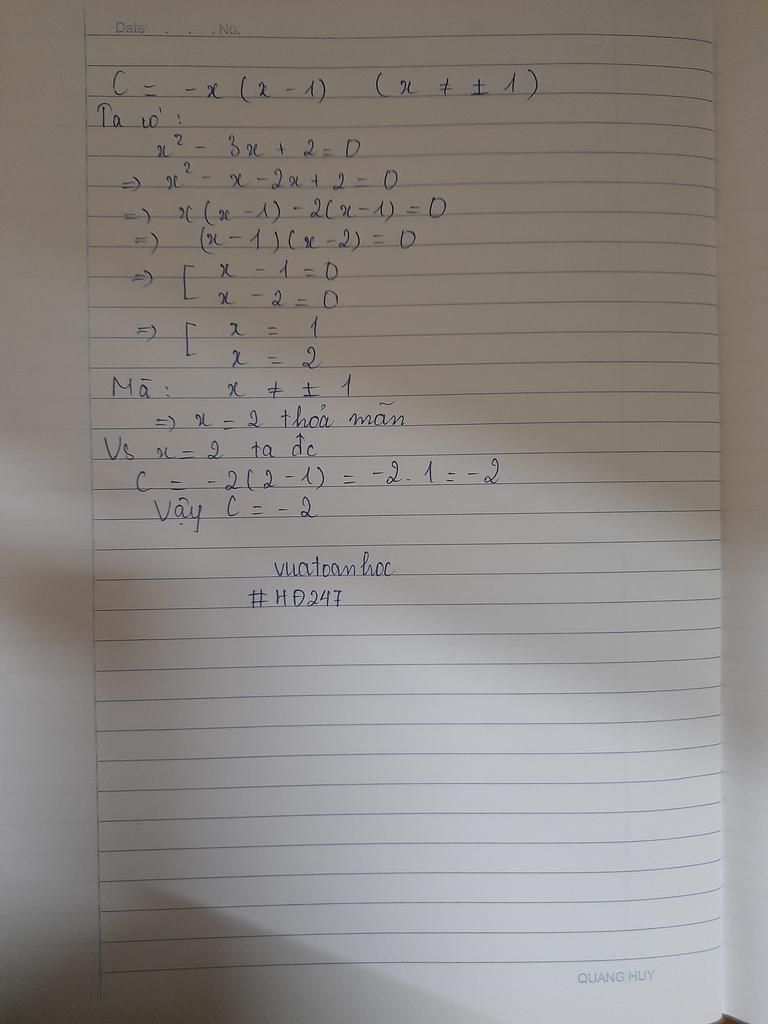 Date . . . No.
C = -x (x - 1) (x ≠ ± 1)
Ta có:
x² - 3x + 2 = 0
=> x² - x - 2x + 2 = 0
=) x(x - 1) - 2(x - 1) = 0
=) (x - 1)(x - 2) = 0
=> [ x - 1 = 0
x - 2 = 0
=> [ x = 1
x = 2
Mà: x ≠ ± 1
=> x = 2 thoả mãn
Vs x = 2 ta đc
C = -2(2 - 1) = -2. 1 = -2
Vậy C = -2
vuatoanhoc
#HĐ247
QUANG HUY